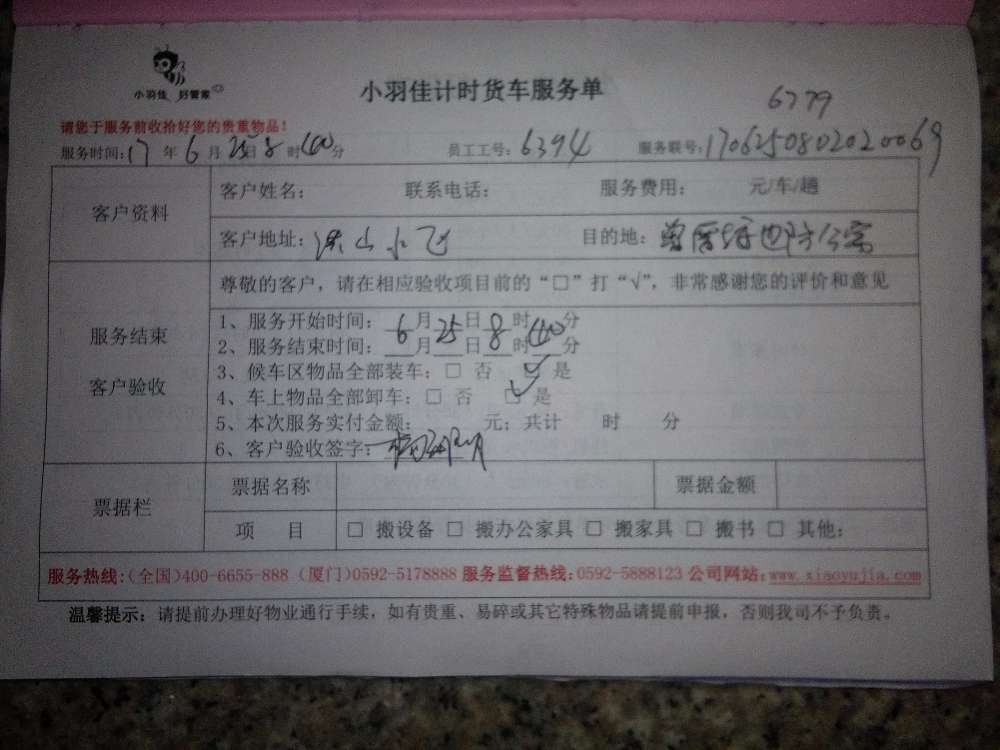 小羽佳 好管家
小羽佳计时货车服务单
6779
请您于服务前收拾好您的贵重物品！
服务时间：17年6月25日8时40分 员工工号：6394 服务联号：170625080202 0069
客户资料
客户姓名： 联系电话： 服务费用： 元/车/趟
客户地址：洪山小飞 目的地：
尊敬的客户，请在相应验收项目前的“□”打“√”，非常感谢您的评价和意见
服务结束
客户验收
1、服务开始时间：6月25日8时40分
2、服务结束时间：__月__日__时__分
3、候车区物品全部装车：□ 否 ☑ 是
4、车上物品全部卸车：□ 否 ☑ 是
5、本次服务实付金额： 元；共计 时 分
6、客户验收签字：
票据栏
票据名称 票据金额
项 目 □ 搬设备 □ 搬办公家具 □ 搬家具 □ 搬书 □ 其他：
服务热线：(全国)400-6655-888 (厦门)0592-5178888 服务监督热线：0592-5888123 公司网站：www.xiaoyujia.com
温馨提示：请提前办理好物业通行手续，如有贵重、易碎或其它特殊物品请提前申报，否则我司不予负责。